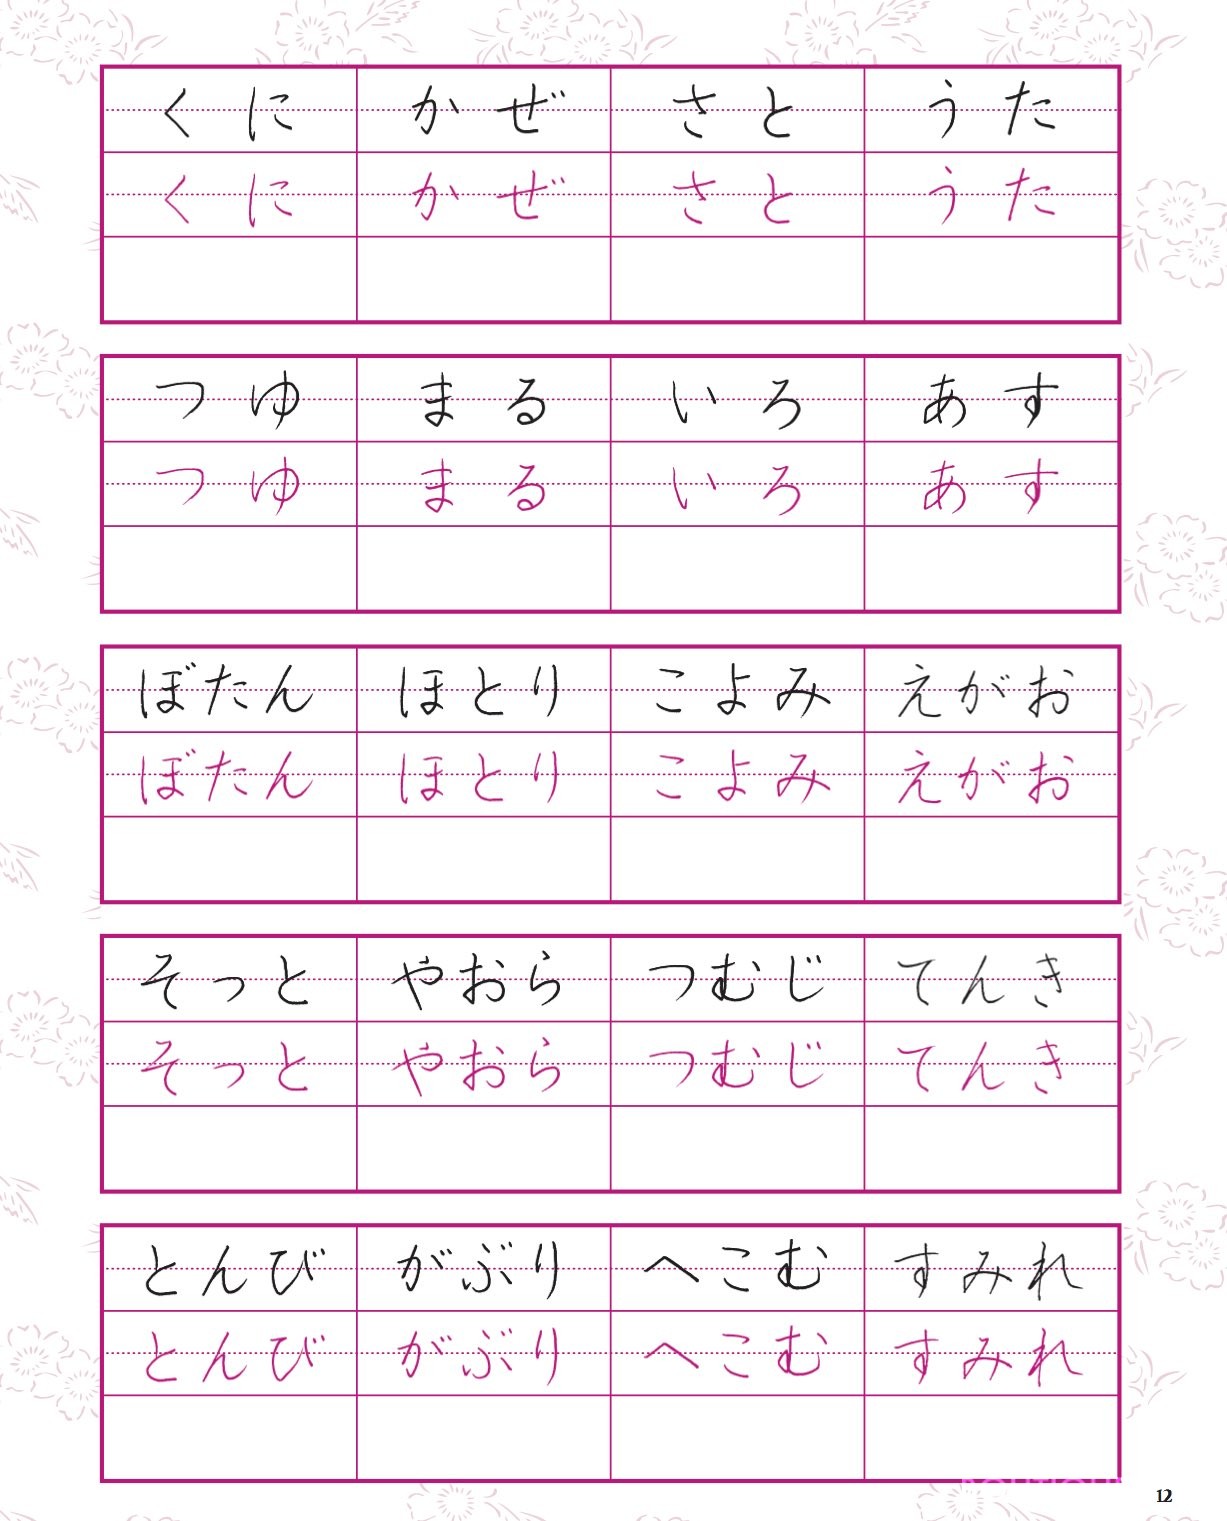 くに かぜ さと うた
くに かぜ さと うた
つゆ まる いろ あす
つゆ まる いろ あす
ぼたん ほとり こよみ えがお
ぼたん ほとり こよみ えがお
そっと やおら つむじ てんき
そっと やおら つむじ てんき
とんび がぶり へこむ すみれ
とんび がぶり へこむ すみれ
12